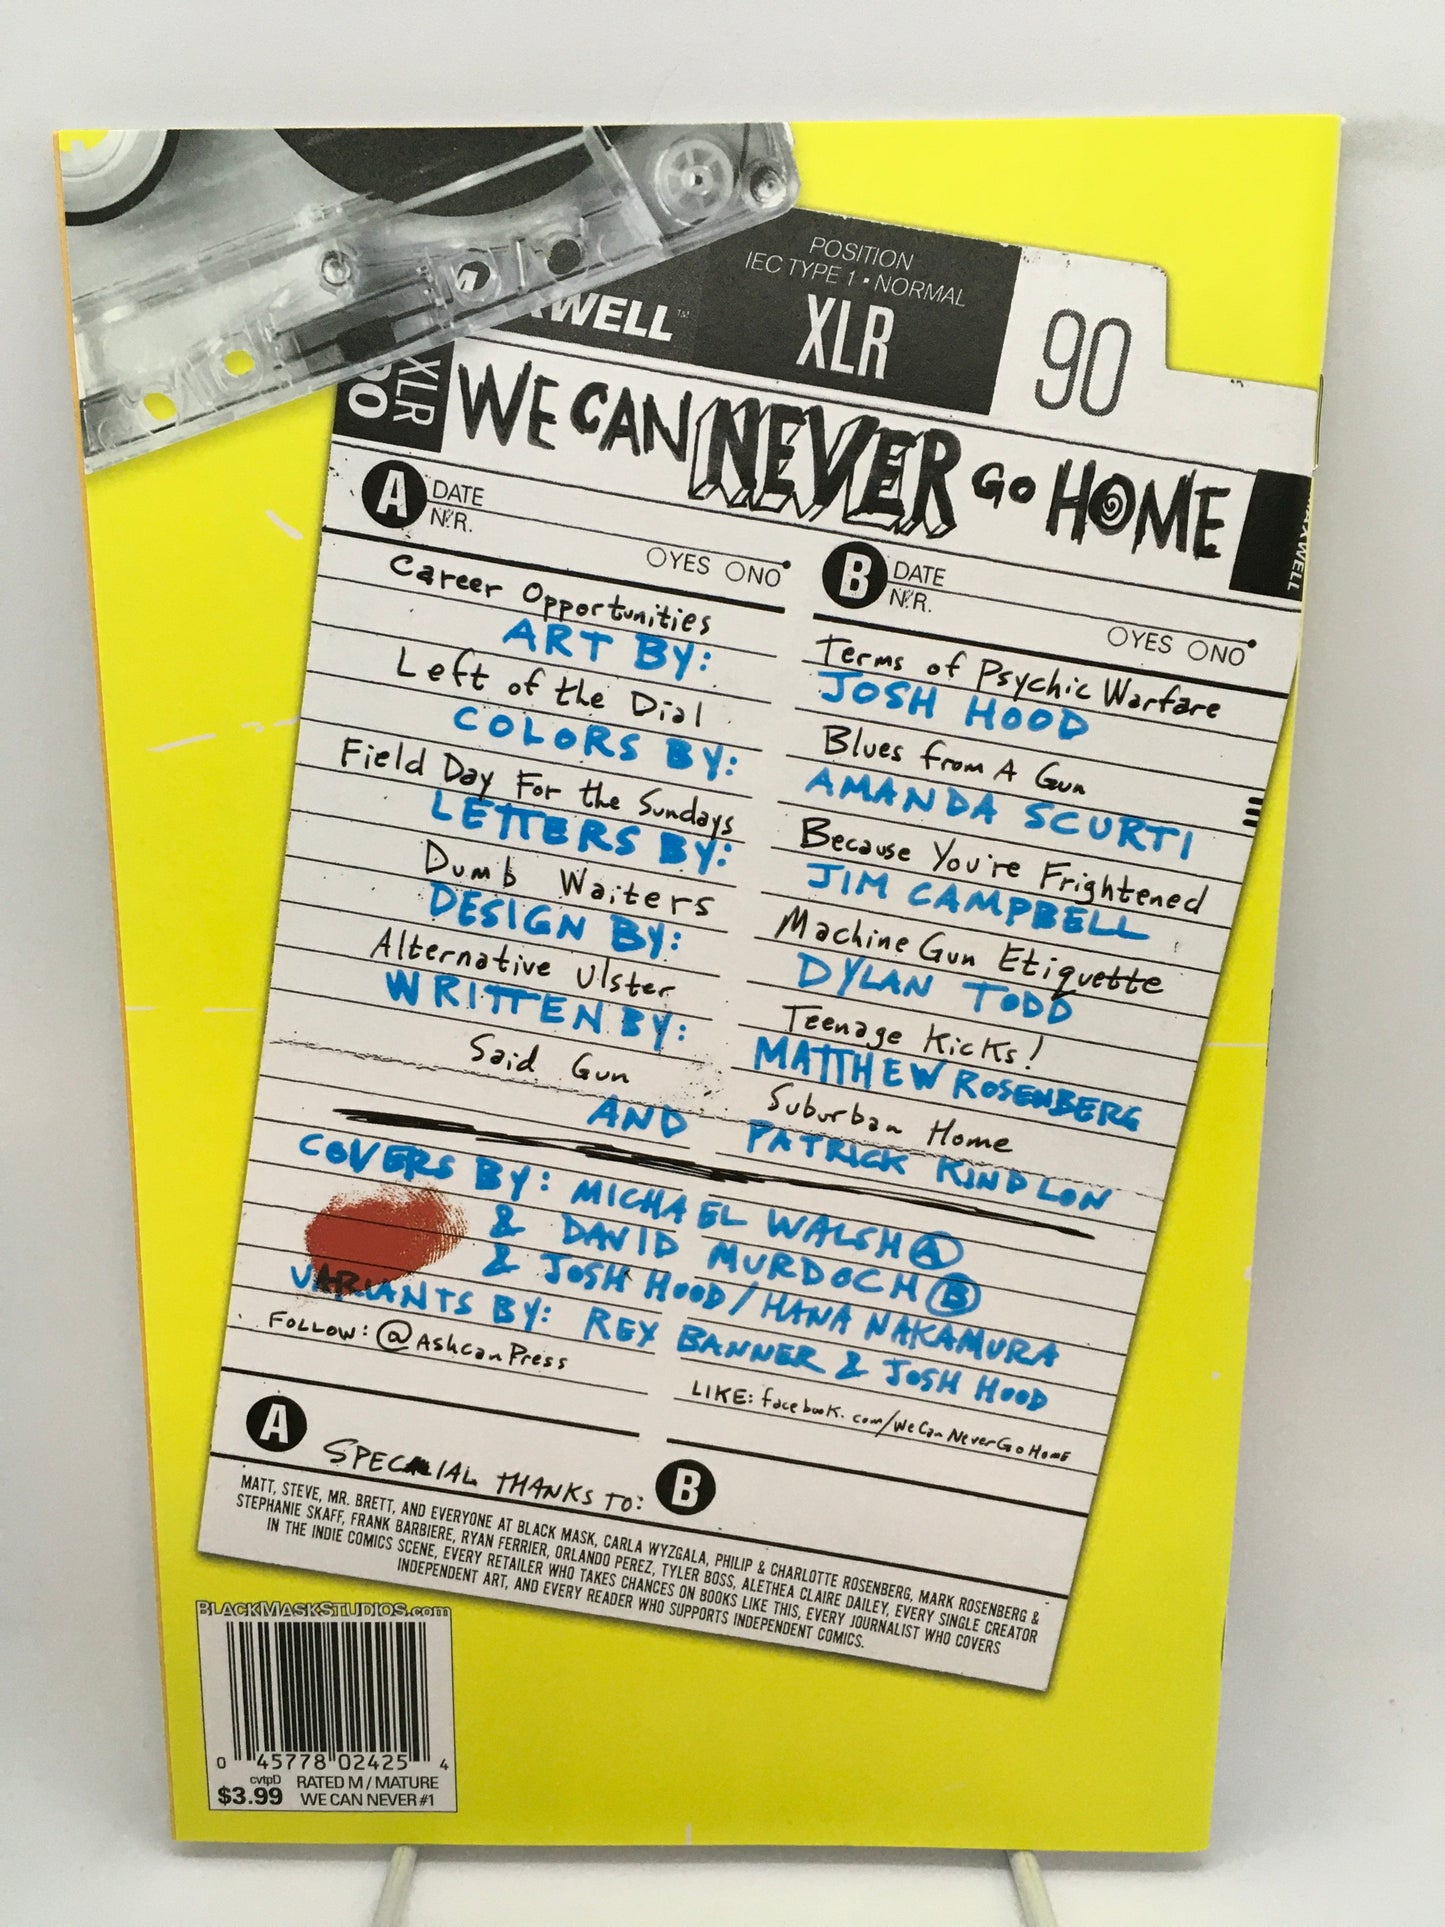 POSITION
IEC TYPE 1 • NORMAL
XWELL™
XLR
90
XLR
90
WE CAN NEVER GO HOME
MAXWELL
A DATE
N.R.
OYES ONO
B DATE
N.R.
OYES ONO
Career Opportunities
Terms of Psychic Warfare
ART BY:
JOSH HOOD
Left of the Dial
Blues from A Gun
COLORS BY:
AMANDA SCURTI
Field Day For the Sundays
Because You're Frightened
LETTERS BY:
JIM CAMPBELL
Dumb Waiters
Machine Gun Etiquette
DESIGN BY:
DYLAN TODD
Alternative Ulster
Teenage Kicks!
WRITTEN BY:
MATTHEW ROSENBERG
Said Gun
Suburban Home
AND
PATRICK KINDLON
COVERS BY: MICHAEL WALSH A
& DAVID MURDOCH B
& JOSH HOOD/HANA NAKAMURA
VARIANTS BY: REX BANNER & JOSH HOOD
FOLLOW: @AshcanPress
LIKE: facebook.com/WeCanNeverGoHome
A SPECIAL THANKS TO: B
MATT, STEVE, MR. BRETT, AND EVERYONE AT BLACK MASK, CARLA WYZGALA, PHILIP & CHARLOTTE ROSENBERG, MARK ROSENBERG &
STEPHANIE SKAFF, FRANK BARBIERE, RYAN FERRIER, ORLANDO PEREZ, TYLER BOSS, ALETHEA CLAIRE DAILEY, EVERY SINGLE CREATOR
IN THE INDIE COMICS SCENE, EVERY RETAILER WHO TAKES CHANCES ON BOOKS LIKE THIS, EVERY JOURNALIST WHO COVERS
INDEPENDENT ART, AND EVERY READER WHO SUPPORTS INDEPENDENT COMICS.
BLACKMASKSTUDIOS.com
0 45778 02425 4
cvtpD RATED M / MATURE
$3.99 WE CAN NEVER #1